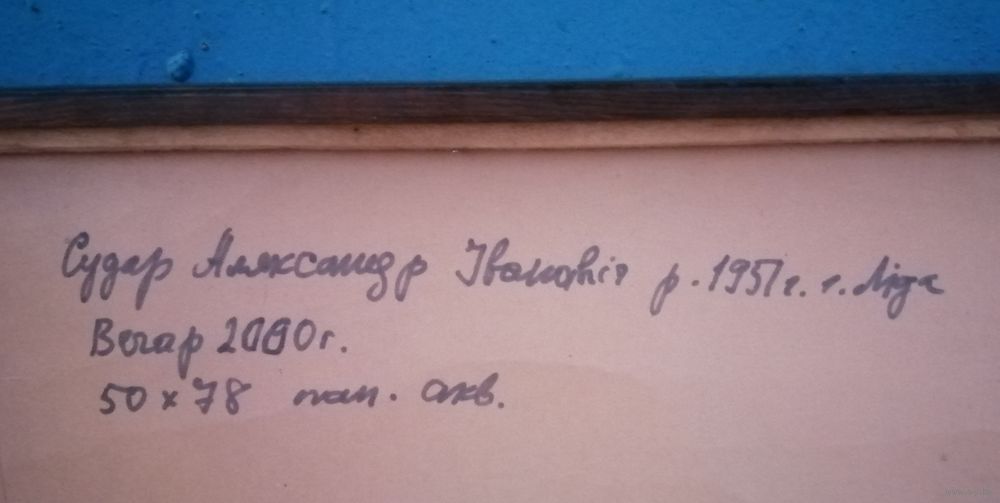 Судар Аляксандр Івановіч р. 1951 г. г. Ліда
Вечар 2000 г.
50 x 78 пап. акв.